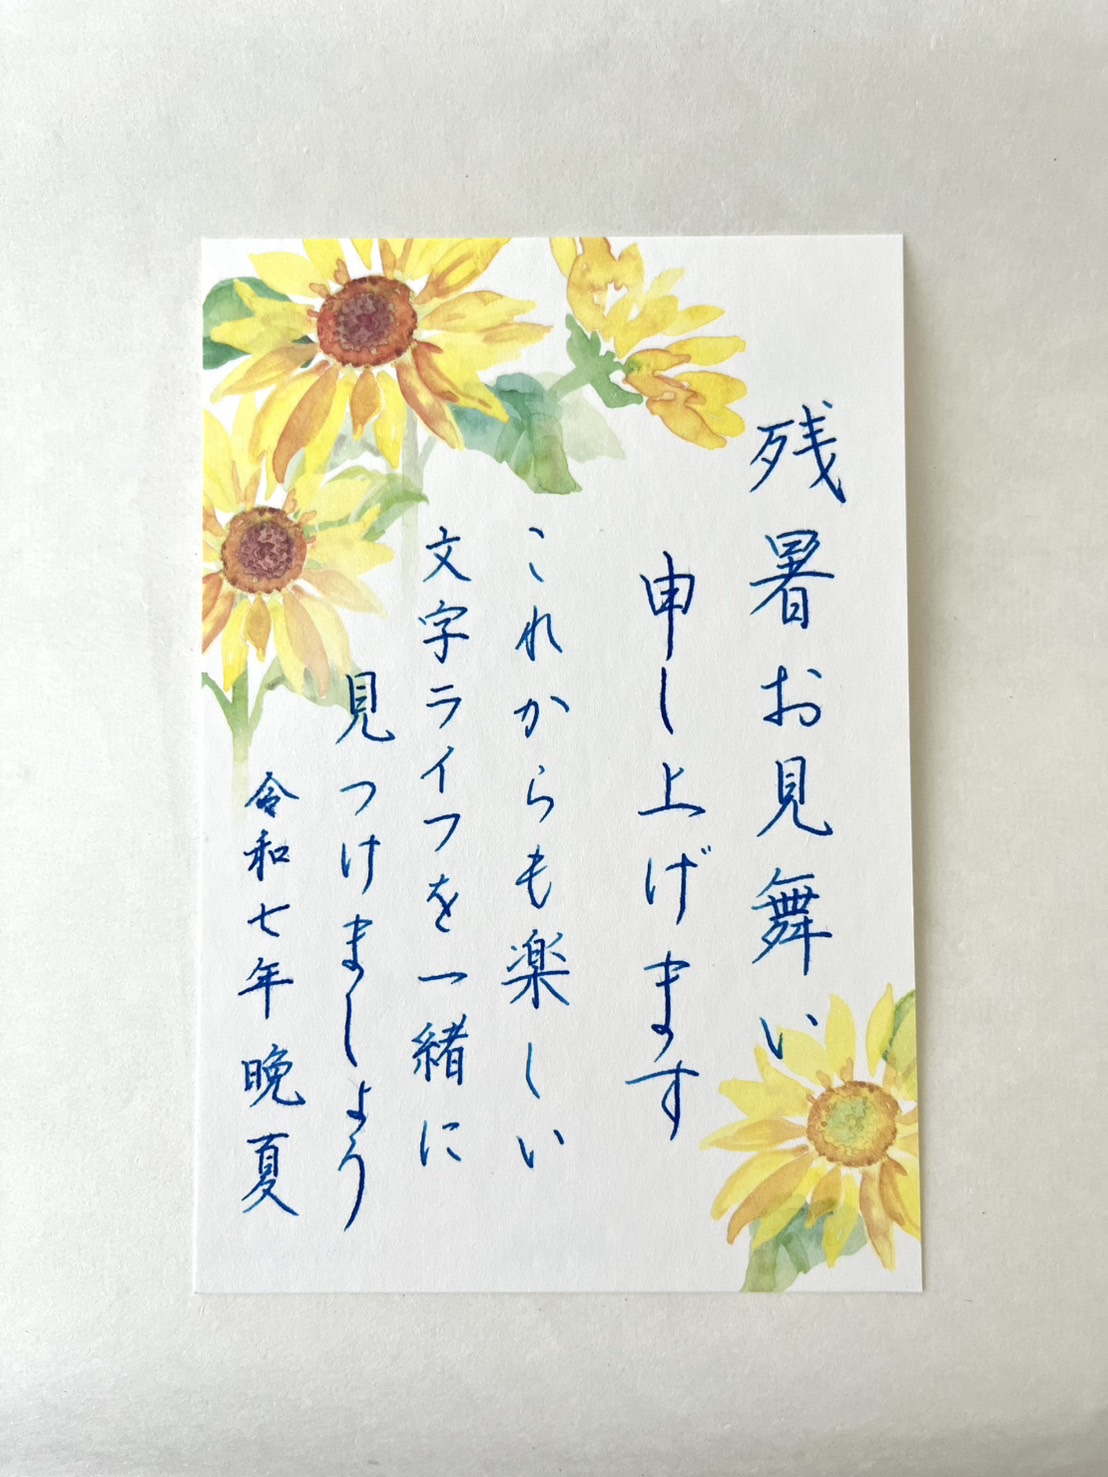 残暑お見舞い
申し上げます
これからも楽しい
文字ライフを一緒に
見つけましょう
令和七年 晩夏